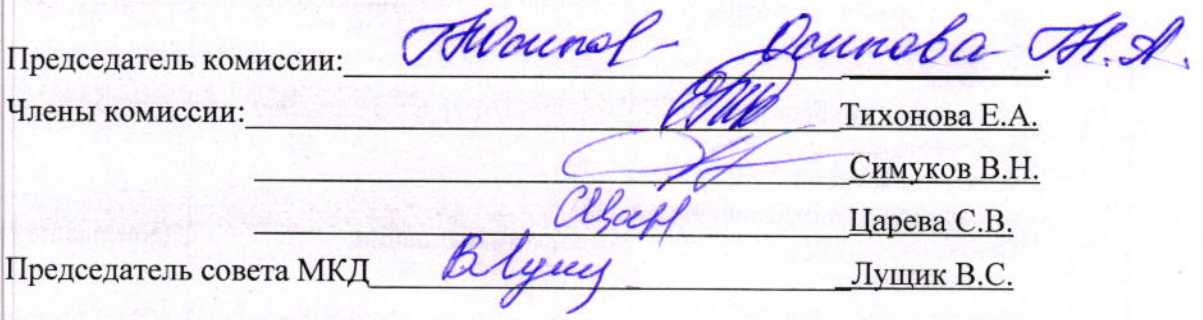 Председатель комиссии: Осипова Н.А.
Члены комиссии: Тихонова Е.А.
Симуков В.Н.
Царева С.В.
Председатель совета МКД Лущик В.С.